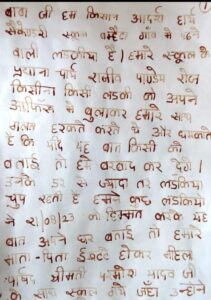 बाबा जी हम किसान आदर्श हायर
सेकेन्डरी स्कूल गाँव में पढ़ने
वाली लड़कीया है। हमारे स्कूल के
प्रधानाचार्य राजीव पाण्डेय रोज
किसी न किसी लडकी को अपने
आफिस में बुलाकर हमारे साथ
गलत हरकते करते थे और धमकाते
है कि यदि यह बात किसी को
बताई तो हमे बरबाद कर देंगे।
उनके डर से ज्यादा तर लडकिया
चुप रहती है हमने कुछ लडकिया
ने 21/08/23 को हिम्मत करके यह
बात अपने घर बताई तो हमारे
माता-पिता इकट्ठा होकर महिला
पार्षद श्रीमती यादव जी
के साथ स्कूल गये जहाँ उन्होने